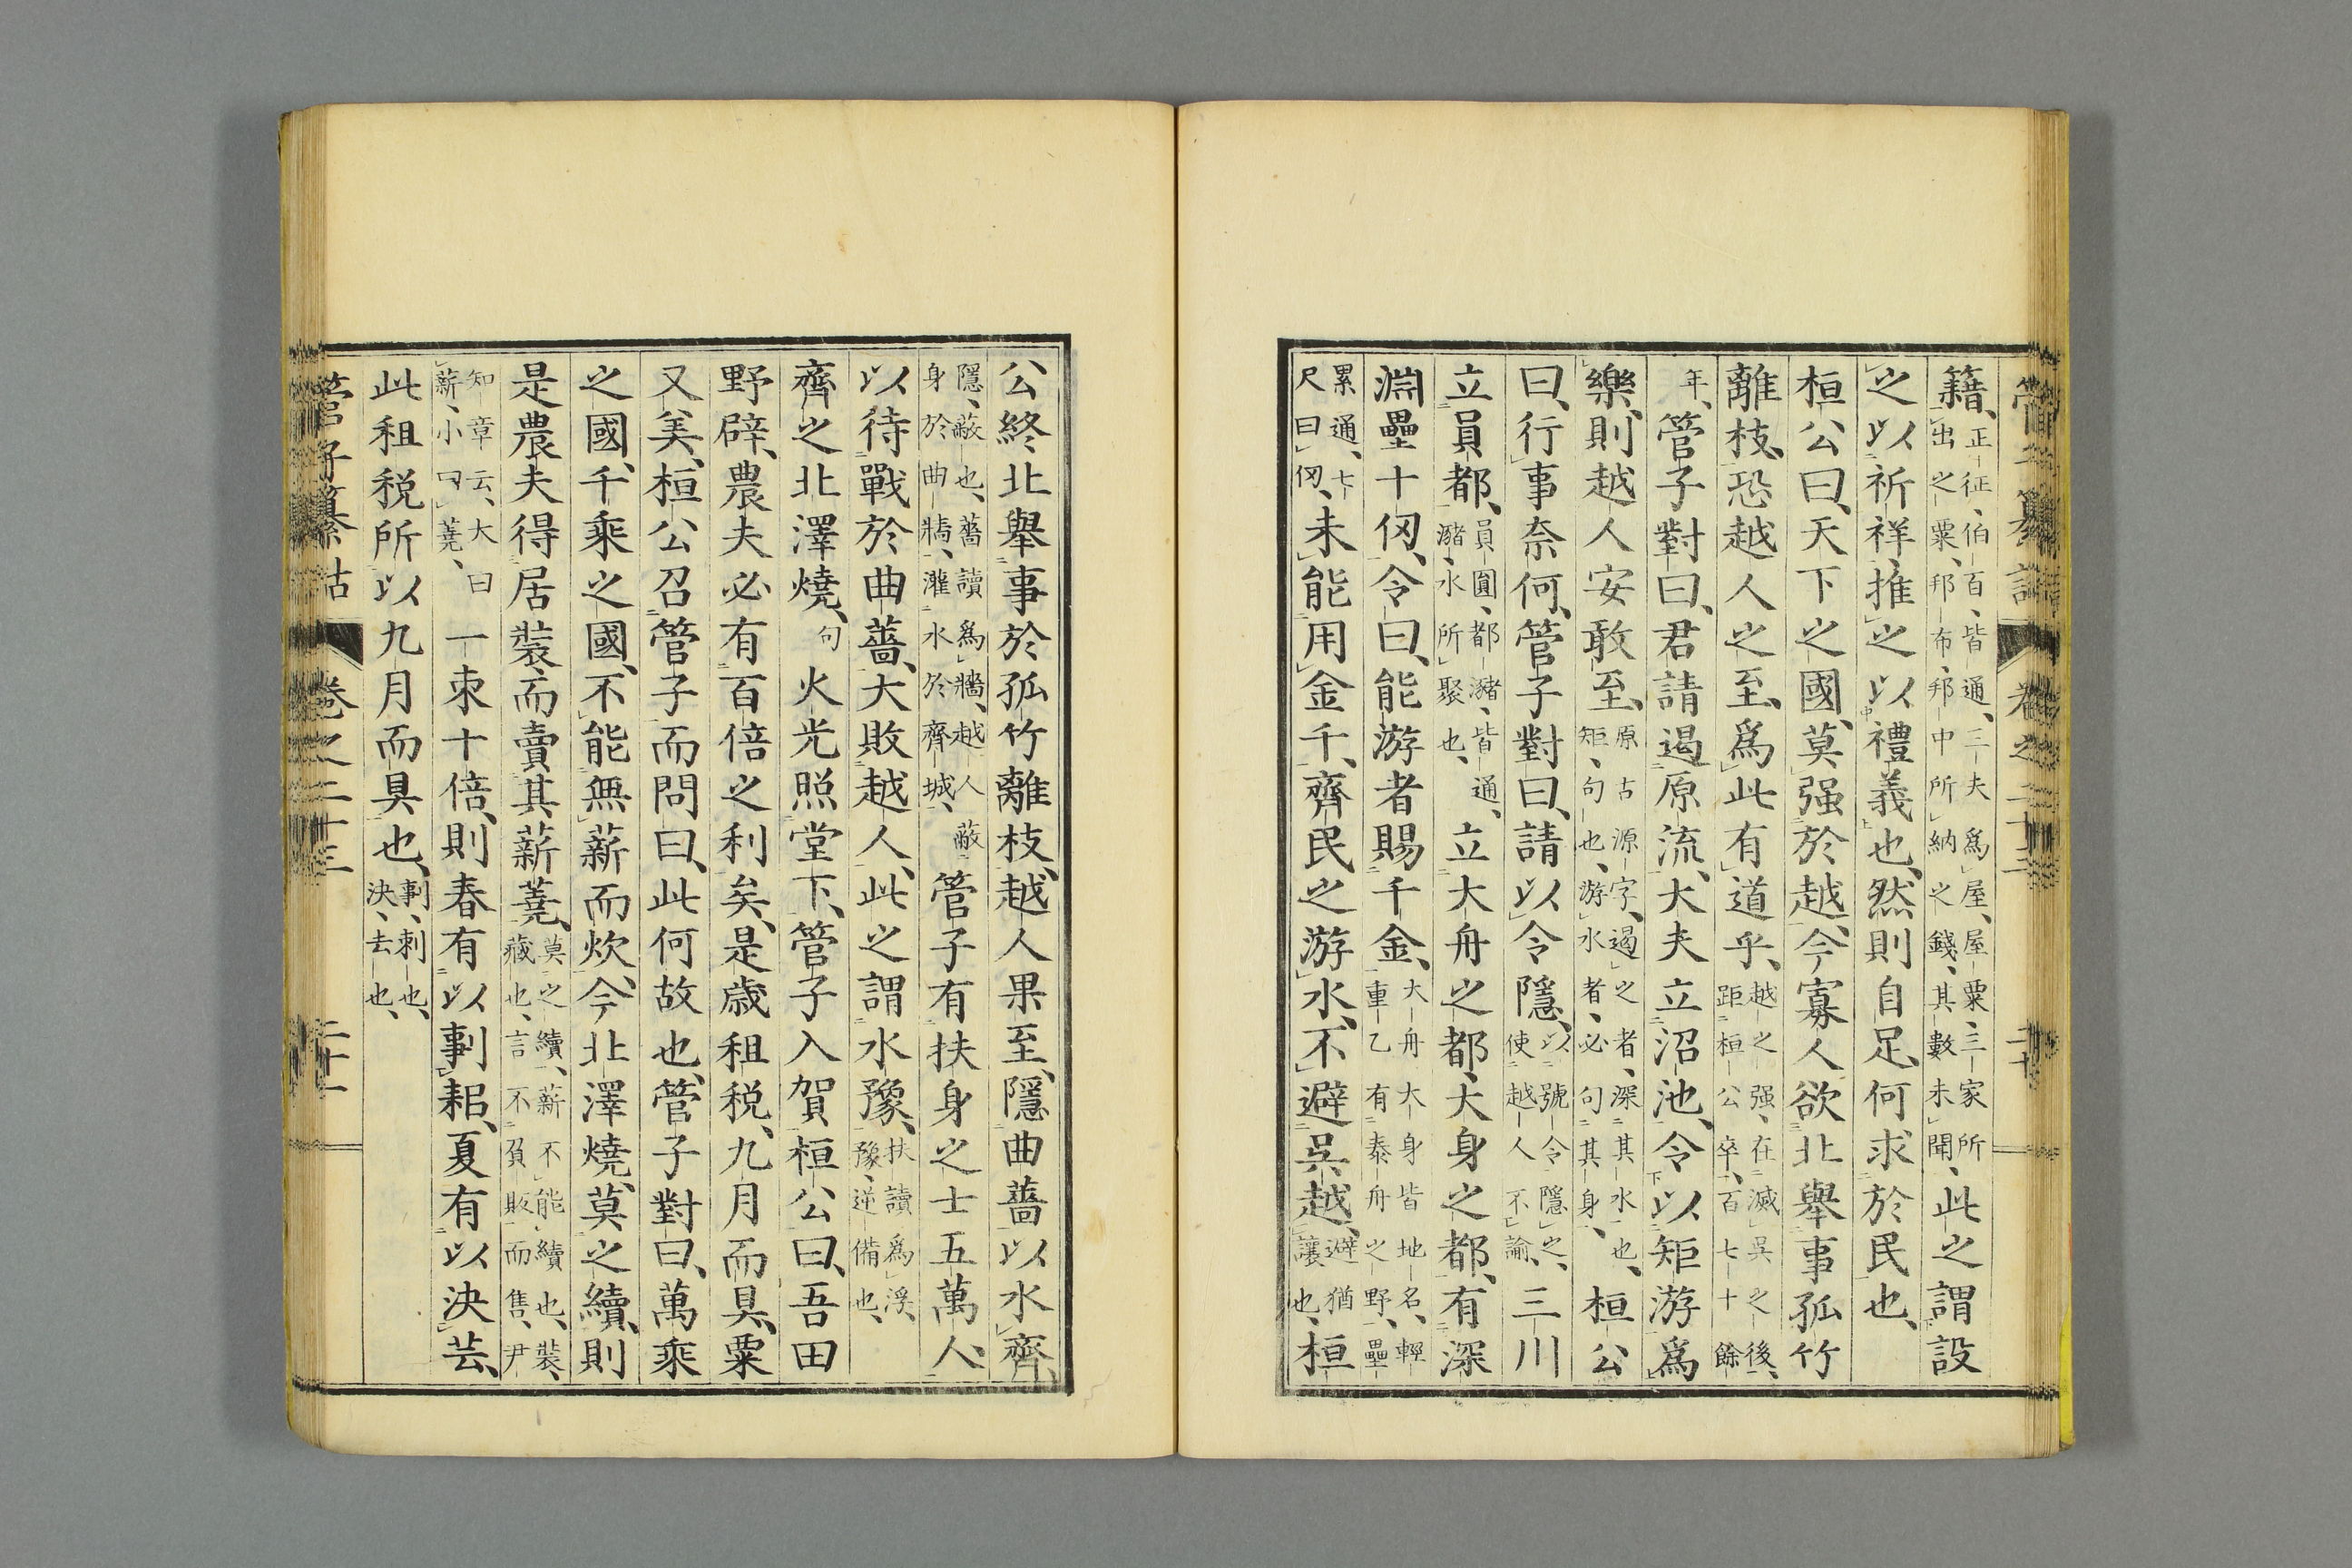 管子纂詁 卷之二十三 二十
籍、正征、伯百、皆通、三夫爲屋、屋粟、三家所出之粟、邦布、邦中所納之錢、其數未聞、此之謂設
之以祈祥、推之以禮義也、然則自足、何求於民也、
桓公曰、天下之國、莫强於越、今寡人欲北舉事孤竹
離枝、恐越人之至、爲此有道乎、越之强、在滅吳之後、距桓公卒、百七十餘
年、管子對曰、君請遏原流、大夫立沼池、令以矩游爲
樂、則越人安敢至、原古源字、遏之者、深其水也、矩、句也、游水者、必句其身、桓公
曰、行事奈何、管子對曰、請以令隱、以號令隱之、使越人不諭、三川
立員都、員圓、都瀦、皆通、瀦、水所聚也、立大舟之都、大身之都、有深
淵壘十仞、令曰、能游者賜千金、大舟大身皆地名、輕重乙有泰舟之野、壘
累通、七尺曰仞、未能用金千、齊民之游水、不避吳越、避猶讓也、桓
公終北舉事於孤竹離枝、越人果至、隱曲薔以水齊、
隱、蔽也、薔讀爲牆、越人蔽身於曲牆、灌水於齊城、管子有扶身之士五萬人、
以待戰於曲薔、大敗越人、此之謂水豫、扶讀爲浮、豫、逆備也、
齊之北澤燒、句火光照堂下、管子入賀桓公曰、吾田
野辟、農夫必有百倍之利矣、是歲租税、九月而具、粟
又美、桓公召管子而問曰、此何故也、管子對曰、萬乘
之國、千乘之國、不能無薪而炊、今北澤燒、莫之續、則
是農夫得居裝、而賣其薪蕘、莫之續、薪不能續也、裝、藏也、言不負販而售、尹
知章云、大曰薪、小曰蕘、一束十倍、則春有以剚耜、夏有以決芸、
此租税所以九月而具也、剚、刺也、決、去也、
管子纂詁 卷之二十三 二十一